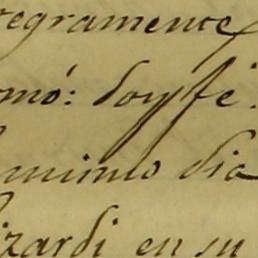 tegramente
mó: doy fé.
mismo dia
izardi en su